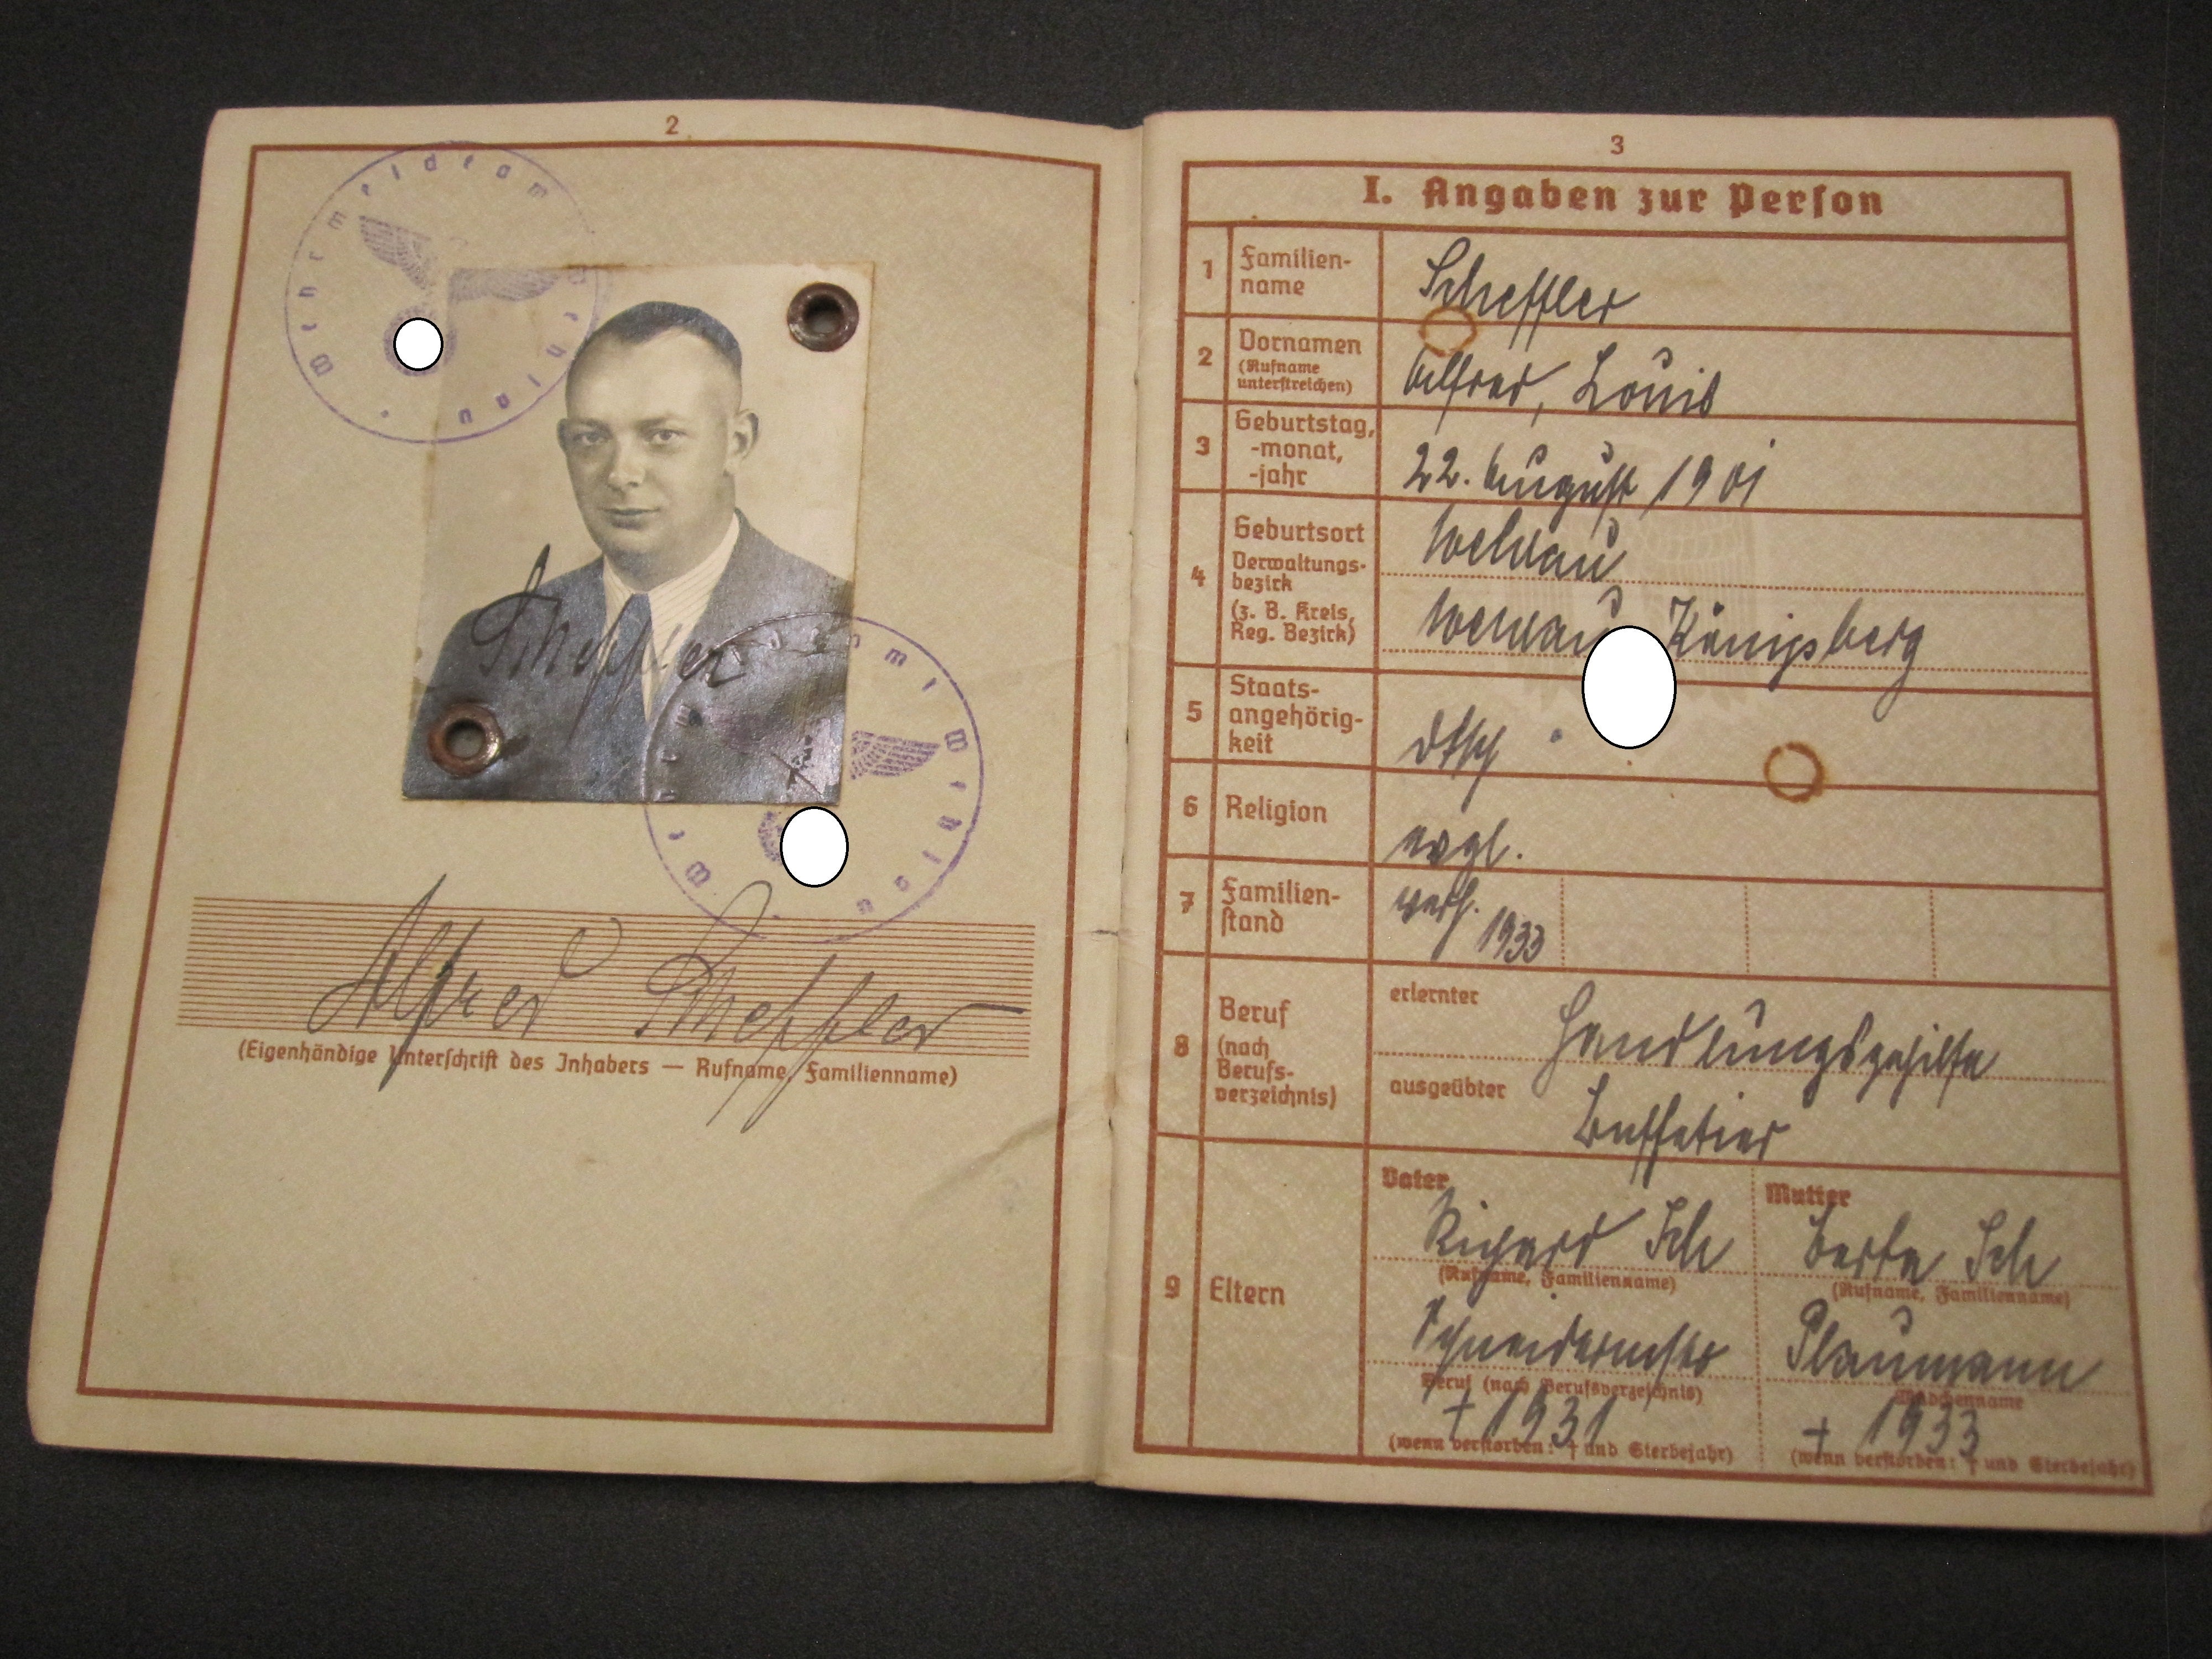 2
Wehrmeldeamt Wehlau
Scheffler
Wehrmeldeamt Wehlau
Alfred Scheffler
(Eigenhändige Unterschrift des Inhabers — Rufname, Familienname)
3
I. Angaben zur Person
1 Familien-
name
Scheffler
2 Vornamen
(Rufname
unterstreichen)
Alfred, Louis
3 Geburtstag,
-monat,
-jahr
22. August 1901
4 Geburtsort
Verwaltungs-
bezirk
(z. B. Kreis,
Reg. Bezirk)
Wehlau
Wehlau Königsberg
5 Staats-
angehörig-
keit
dtsch
6 Religion
evgl.
7 Familien-
stand
verh. 1933
8 Beruf
(nach
Berufs-
verzeichnis)
erlernter Handlungsgehilfe
ausgeübter
Buffetier
9 Eltern
Vater
Richard Sch
(Rufname, Familienname)
Schneidermstr
Beruf (nach Berufsverzeichnis)
† 1931
(wenn verstorben: † und Sterbejahr)
Mutter
Berta Sch
(Rufname, Familienname)
Plaumann
Mädchenname
† 1933
(wenn verstorben: † und Sterbejahr)